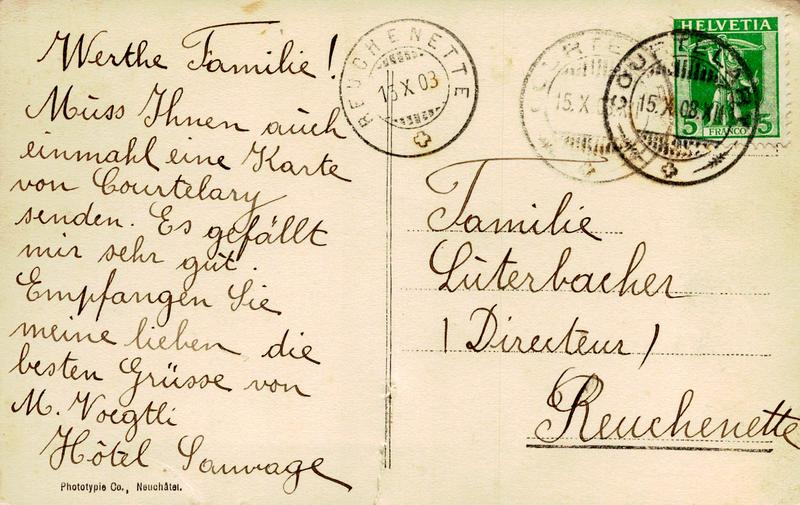 Werthe Familie!
Muss Ihnen auch
einmahl eine Karte
von Courtelary
senden. Es gefällt
mir sehr gut.
Empfangen Sie
meine lieben, die
besten Grüsse von
M. Voegtli
Hôtel Sauvage
Phototypie Co., Neuchâtel.
REUCHENETTE
COURTELARY
HELVETIA
5 5
FRANCO
Familie
Lüterbacher
(Directeur)
Reuchenette